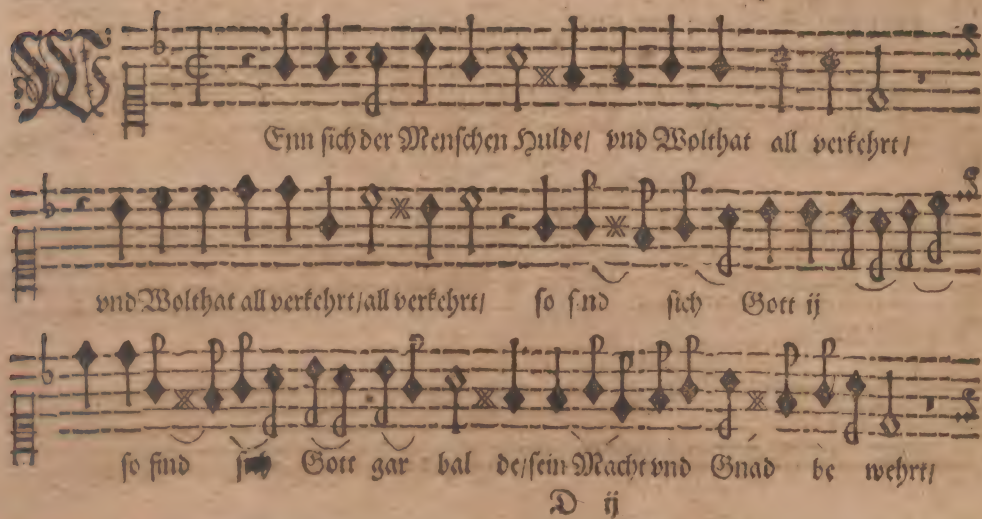 WEnn sich der Menschen Hulde/ vnd Wolthat all verkehrt/
vnd Wolthat all verkehrt/all verkehrt/ so find sich Gott ij
so find sich Gott gar bal de/sein Macht vnd Gnad be wehrt/
D ij